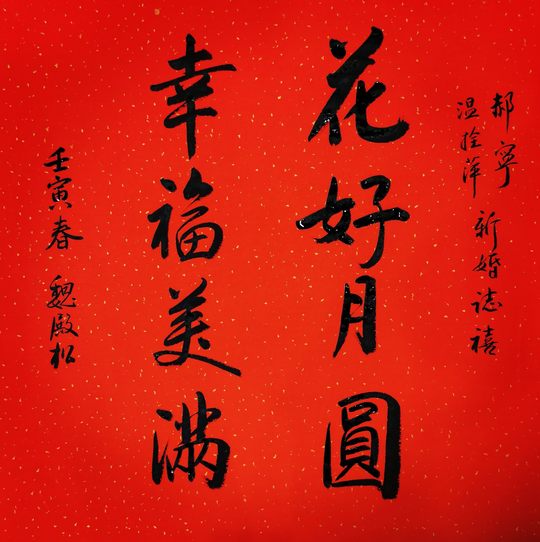 郝寧
温拴萍
新婚誌禧
花好月圓
幸福美满
壬寅春 魏殿松